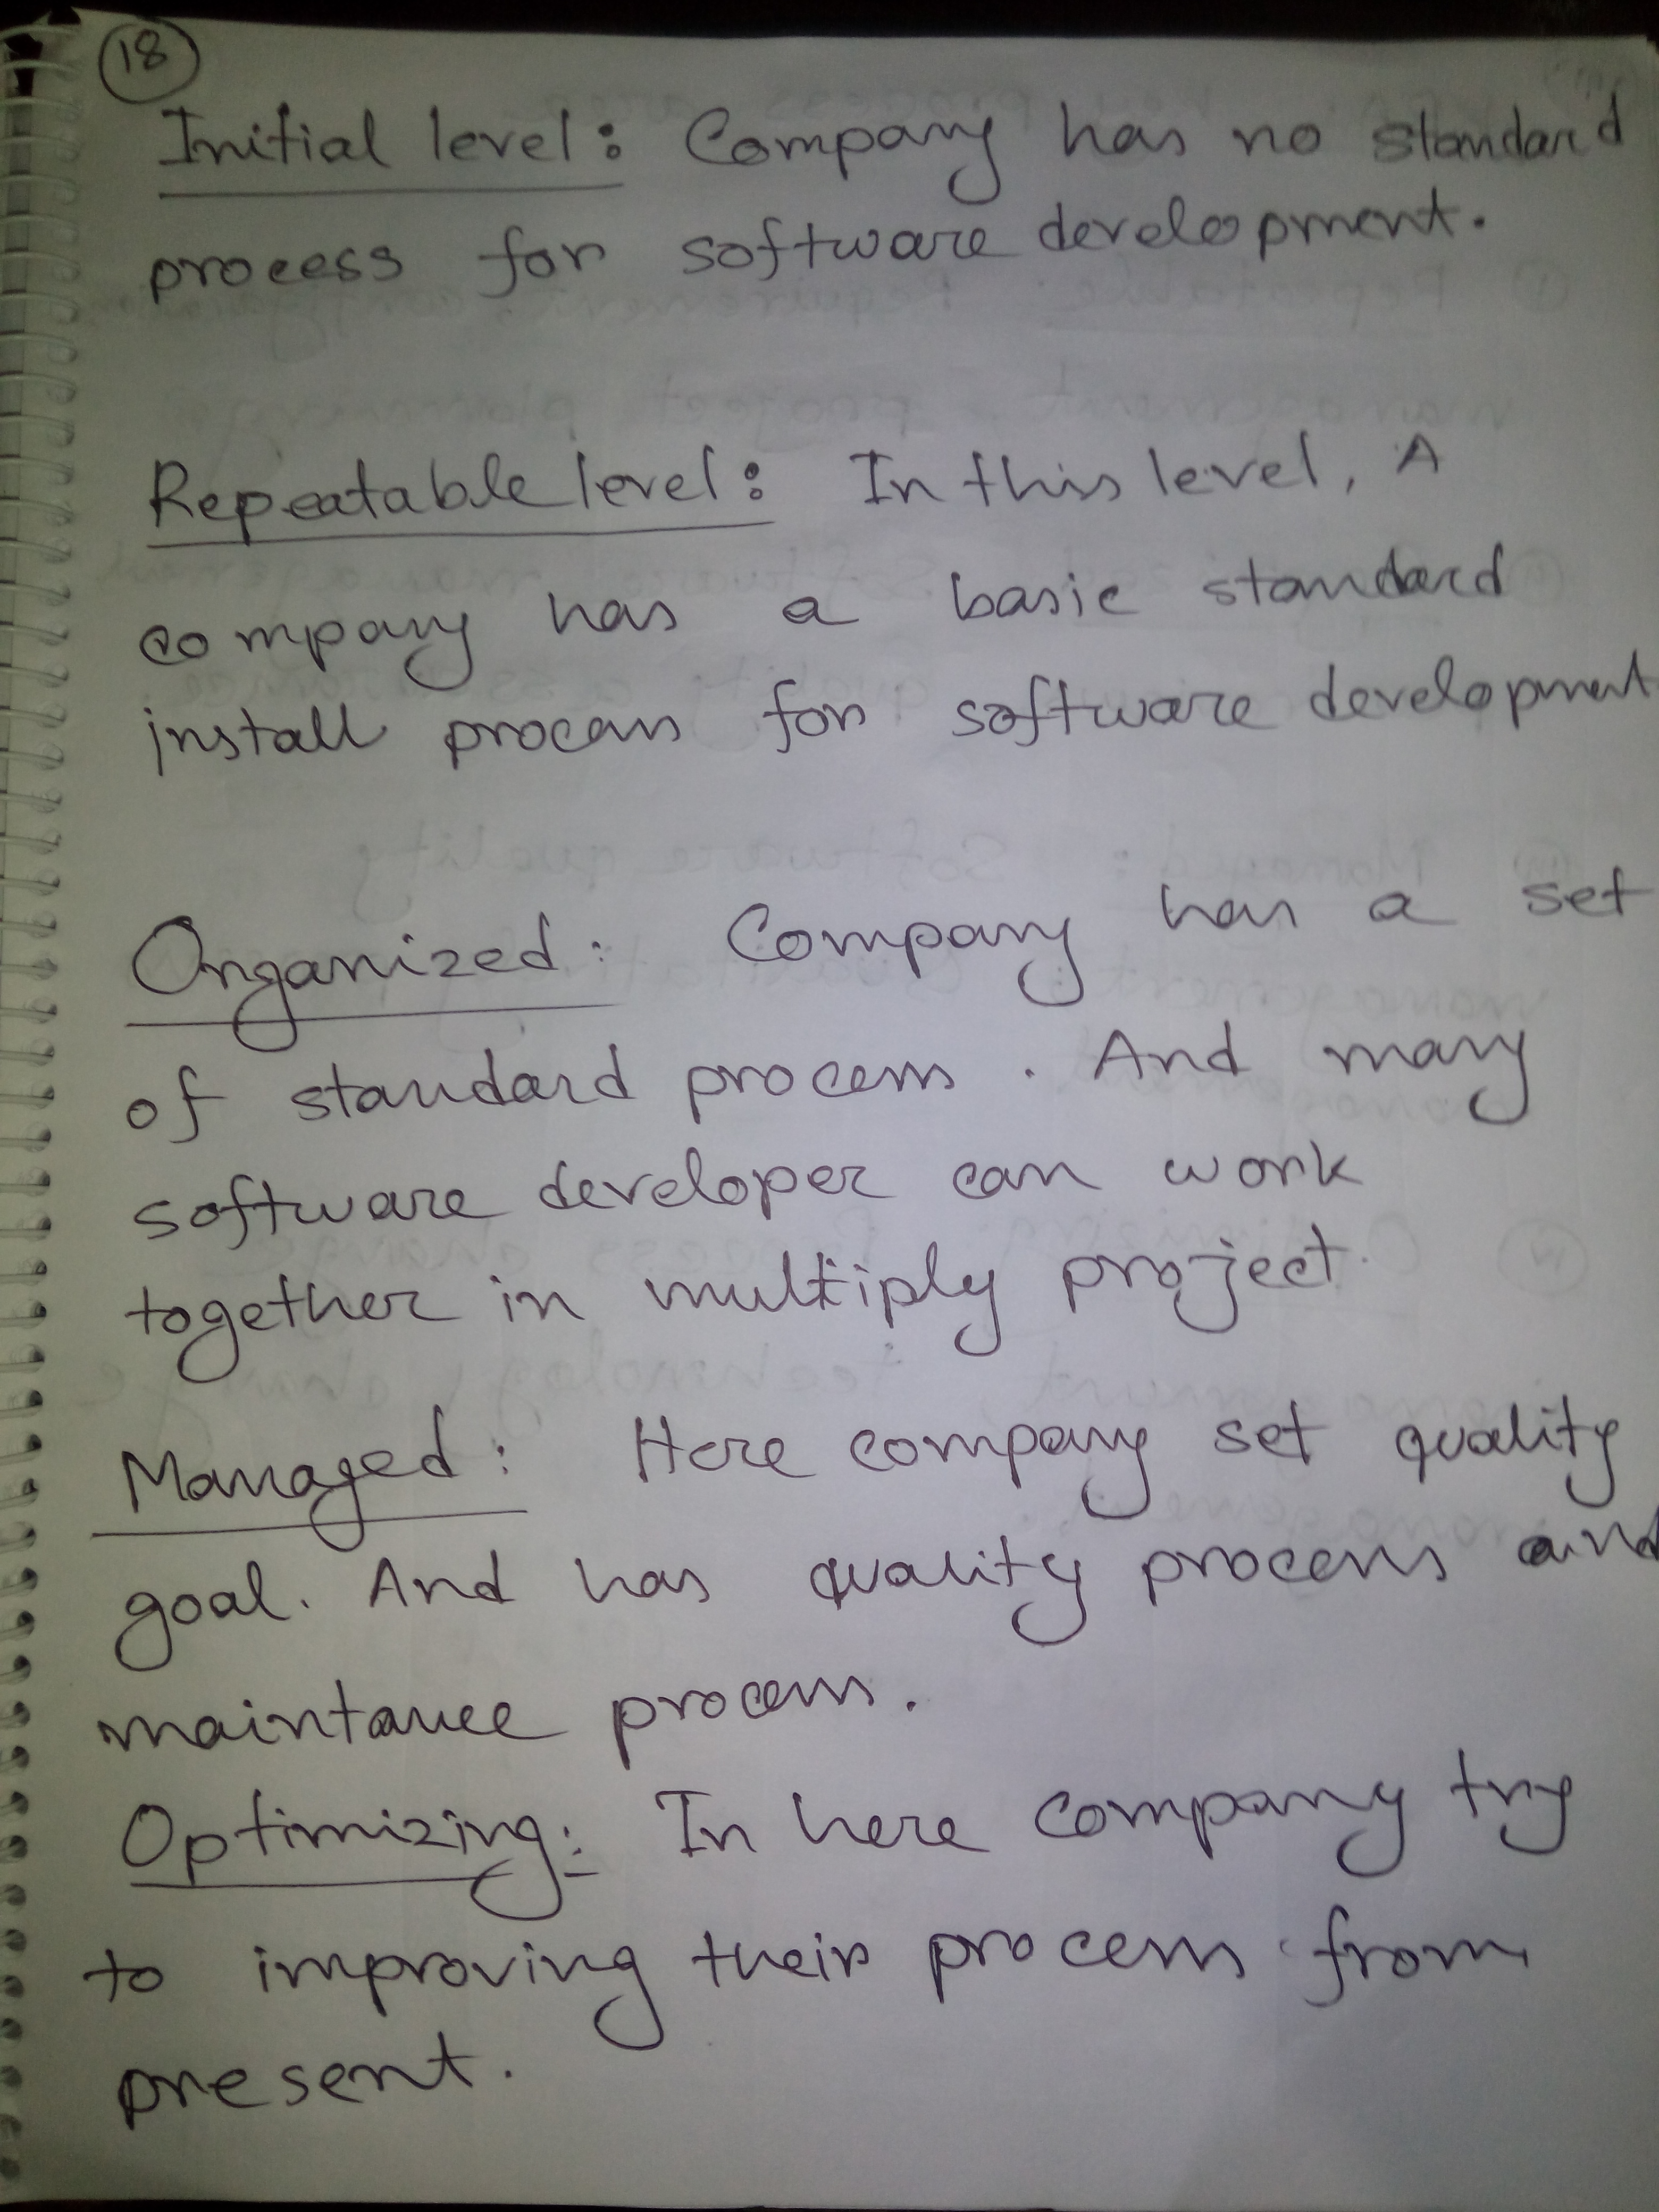 18
Initial level: Company has no standard
process for software development.
Repeatable level: In this level, A
company has a basic standard
install process for software development
Organized: Company has a set
of standard process. And many
software developer can work
together in multiply project.
Managed: Here company set quality
goal. And has quality process and
maintance process.
Optimizing: In here company try
to improving their process from
present.